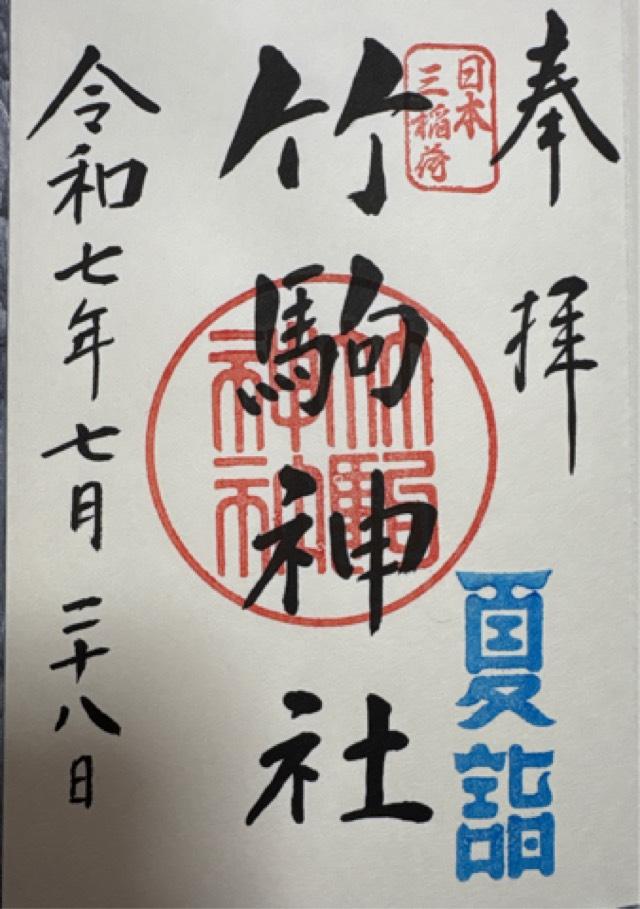 奉拝
日本
三稲荷
夏詣
竹駒神社
竹駒
神社
令和七年七月二十八日